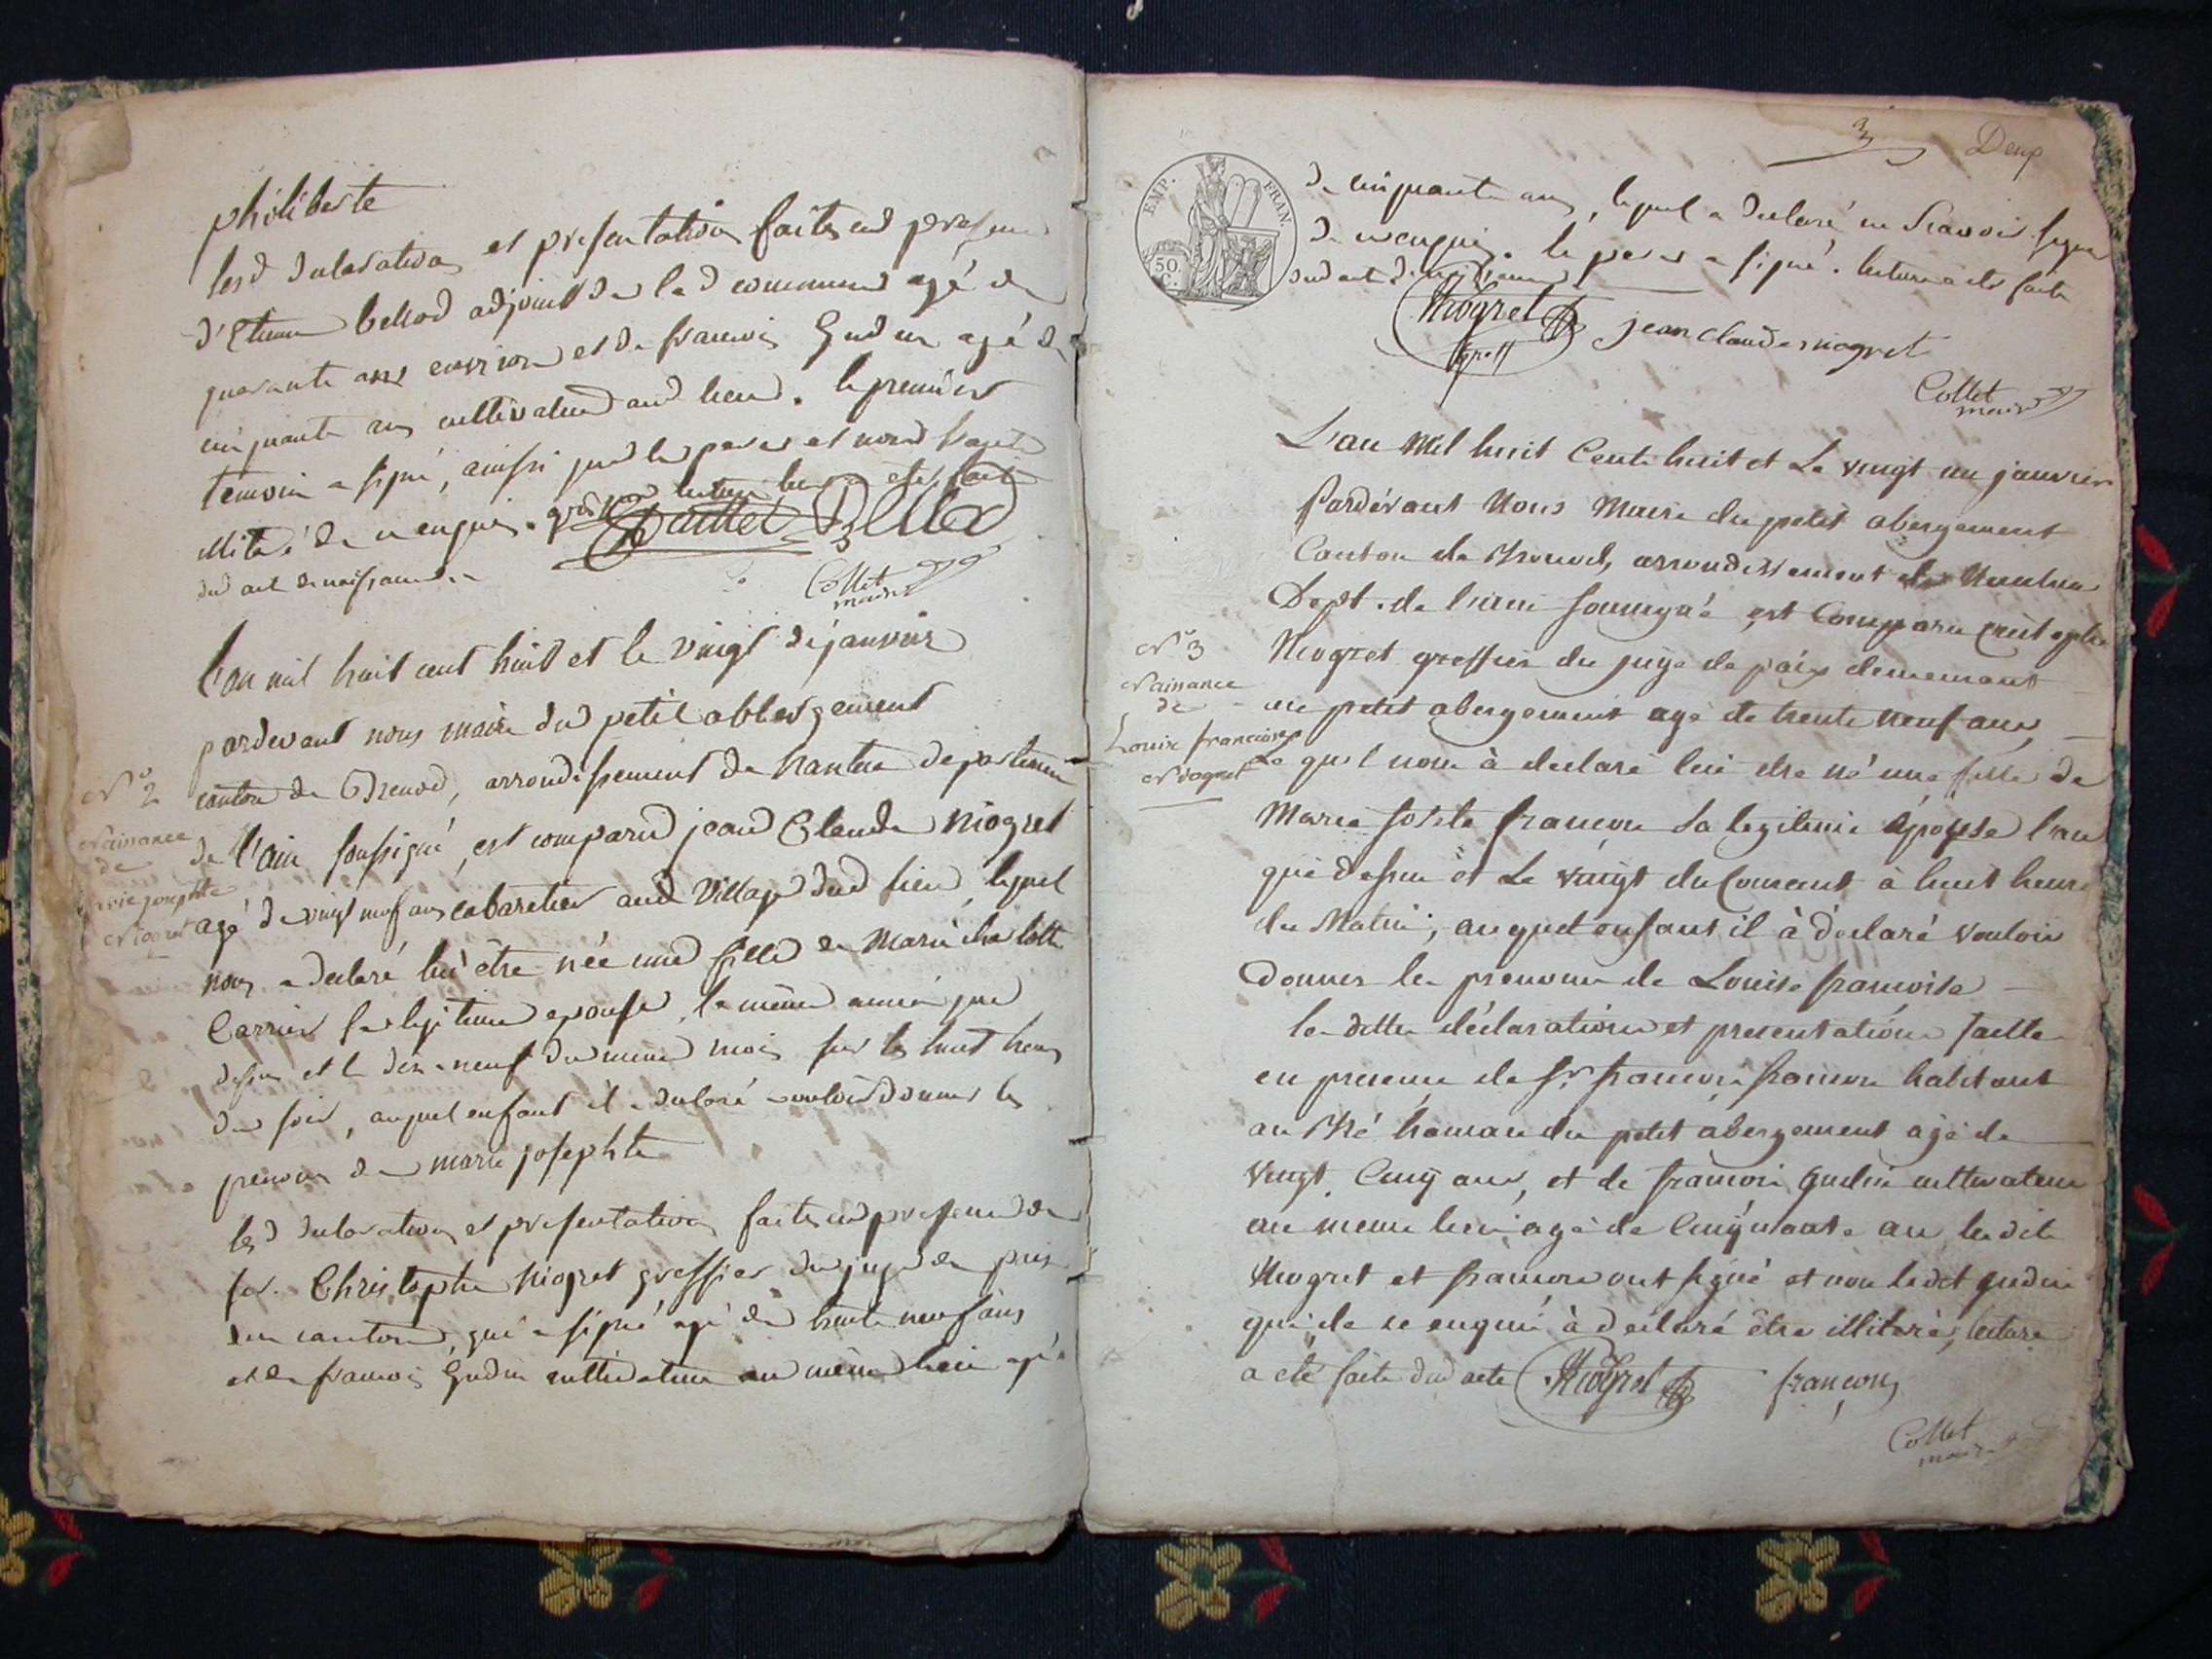 philiberte
lesd declaration et presentation faites en presence
d'Etienne bellod adjoint de lad commune agé de
quarante ans environ et de francois Gudin agé de
cinquante ans cultivateur aud lieu. le premier
temoin a signé, ainssi que le pere et non l'autre
illiteré de ce enquis. lecture leur a eté fait
dud act de naissance.
Bellod
Collet
maire
l'an mil huit cent huit et le vingt de janvier
pardevant nous maire du petit abbergement
N° 2
canton de Brenod, arrondissement de Nantua departement
Naissance
de
marie josephte
Niogret
de l'ain soussigné, est comparu jean Claude Niogret
agé de vingt neuf ans cabaretier aud village dud lieu, lequel
nous a declaré lui être née une fille de Marie charlotte
Carrier sa legitime epouse, la même année que
dessus et le dix-neuf du meme mois sur les huit heures
du soir, auquel enfant il a declaré vouloir donner les
prenoms de marie josephte
lesd declaration et presentation faites en presence de
sr. Christophe Niogret greffier du juge de paix
du canton, qui a signé agé de trente neuf ans
et de francois Gudin cultivateur au même lieu agé
3
Deux
EMP. FRAN.
50
C.
de cinquante ans, lequel a declaré ne scavoir signer
de ce enquis. le pere a signé. lecture a été faite
dud act de naissance
Niogret
jean claude niogret
Collet
maire
L'an Mil huit Cent huit et Le vingt un janvier
Pardevant Nous Maire du petit abergement
Canton de Brenod, arrondissement de Nantua
Dept. de l'ain soussigné est Comparu Cristophe
N° 3
Naissance
de
Louise francoise
Niogret
Niogret greffier du juge de paix demeurant
au petit abergement agé de trente neuf ans,
Le quel nous à declaré lui etre né une fille de
Marie françon Sa legitime épouse l'an
que dessus et Le vingt du Courant à huit heures
du Matin, auquel enfant il à déclaré vouloir
donner les prenoms de Louise francoise
la ditte déclaration et presentation faitte
en presence de Sr. francois françon habitant
au du petit abergement agé de
vingt Cinq ans, et de francois gudin cultivateur
au meme lieu agé de Cinquante ans lesdits
Niogret et françon ont signé et non ledit gudin
qui de ce enquis à déclaré être illiteré, lecture
a eté faite dud acte
Niogret
françon
Collet
maire